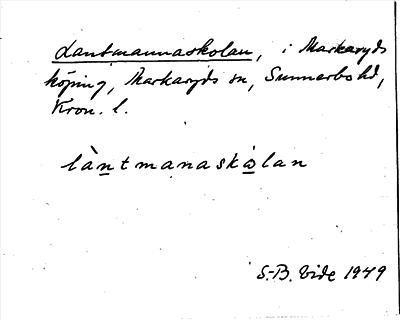 Lantmannaskolan, i Markaryds
köping, Markaryds sn, Sunnerbo hd,
Kron. l.
làntmanaskòlan
S-B. Vide 1949